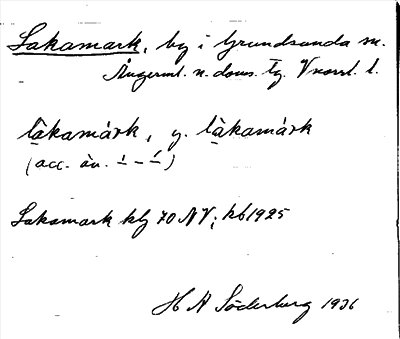 Lakamark, by i Grundsunda sn.
Ångerml. n. doms. tg. Vnorrl. l.
lākamárk, y. lākamárk
(acc. àv. ⸌ – ⸍)
Lakamark kbg 70 NV; hb 1925
H A Söderberg 1936